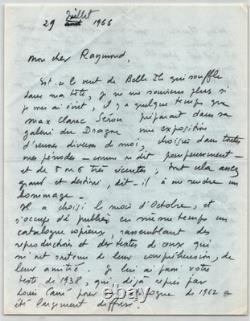 29 Juillet 1966
mon cher Raymond,
Est-ce le vent de Belle Ile qui souffle
dans ma tête, je ne me souviens plus si
je vous ai écrit, il y a quelque temps que
max Clarac Sérou préparait dans sa
galerie du Dragon une exposition
d'œuvres diverses de moi, choisies dans toutes
mes périodes — comme on dit pompeusement —
et de 5 ou 6 très récentes, tout cela assez
grand et destiné, dit-il à me rendre un
hommage.
Il a choisi le mois d'Octobre, et
s'occupe de publier en même temps un
catalogue copieux, rassemblant des
reproductions et des textes de ceux qui
m'ont entouré de leur compréhension, de
leur amitié. Je lui ai parlé votre
texte de 1938, qui, déjà repris par
Louis Carré pour le catalogue de 1962 a
été largement diffusé.